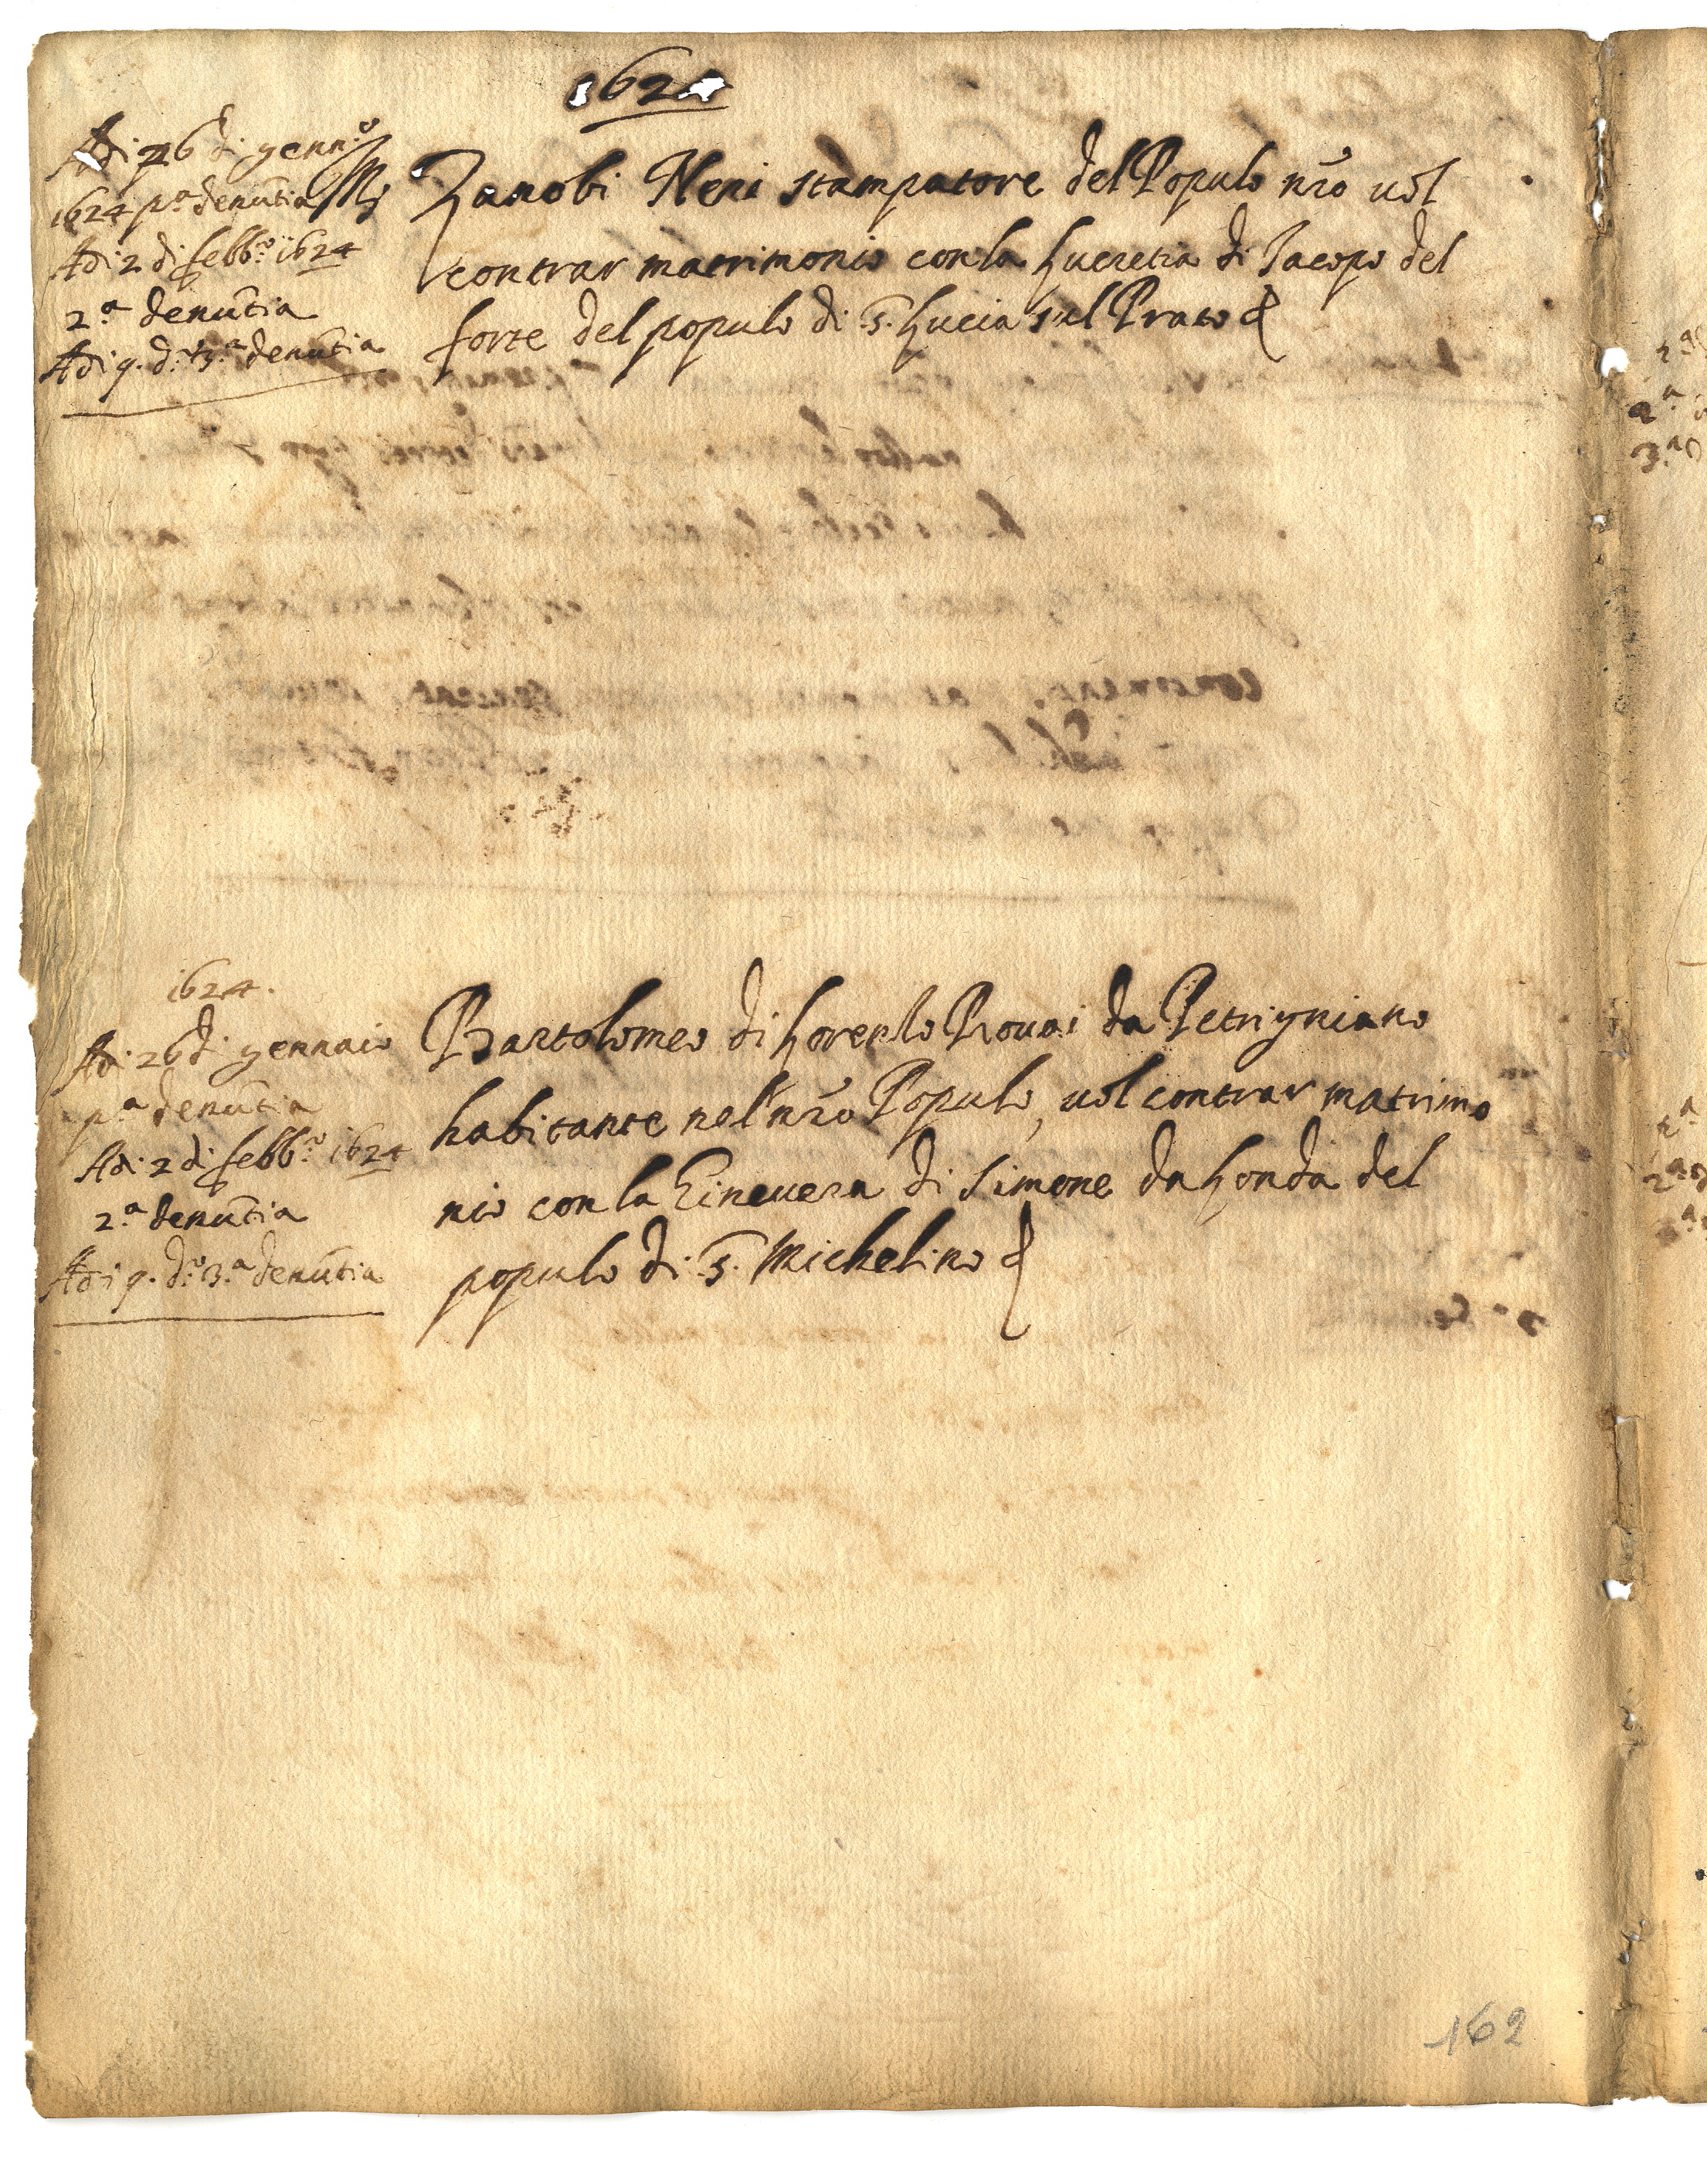 1624
Adi 26 di genn.o
1624 p.a denũtia
Adi 2 di febb.o 1624
2.a denũtia
Adi 9. d.o 3.a denũtia
Zanobi Neri stampatore del Populo nr̃o uol
contrar matrimonio con la Lucretia di Jacopo del
forte del populo di S. Lucia sul Prato
1624.
Adi 26 di gennaio
p.a denũtia
Adi 2 di febb.o 1624
2.a denũtia
Adi 9. d.o 3.a denũtia
Bartolomeo di Lorenzo Rouai da Petrigniano
habitante nel nr̃o Populo, uol contrar matrimo
nio con la Gineuera di Simone da Londa del
populo di S. Michelino
162
2.a
3.a